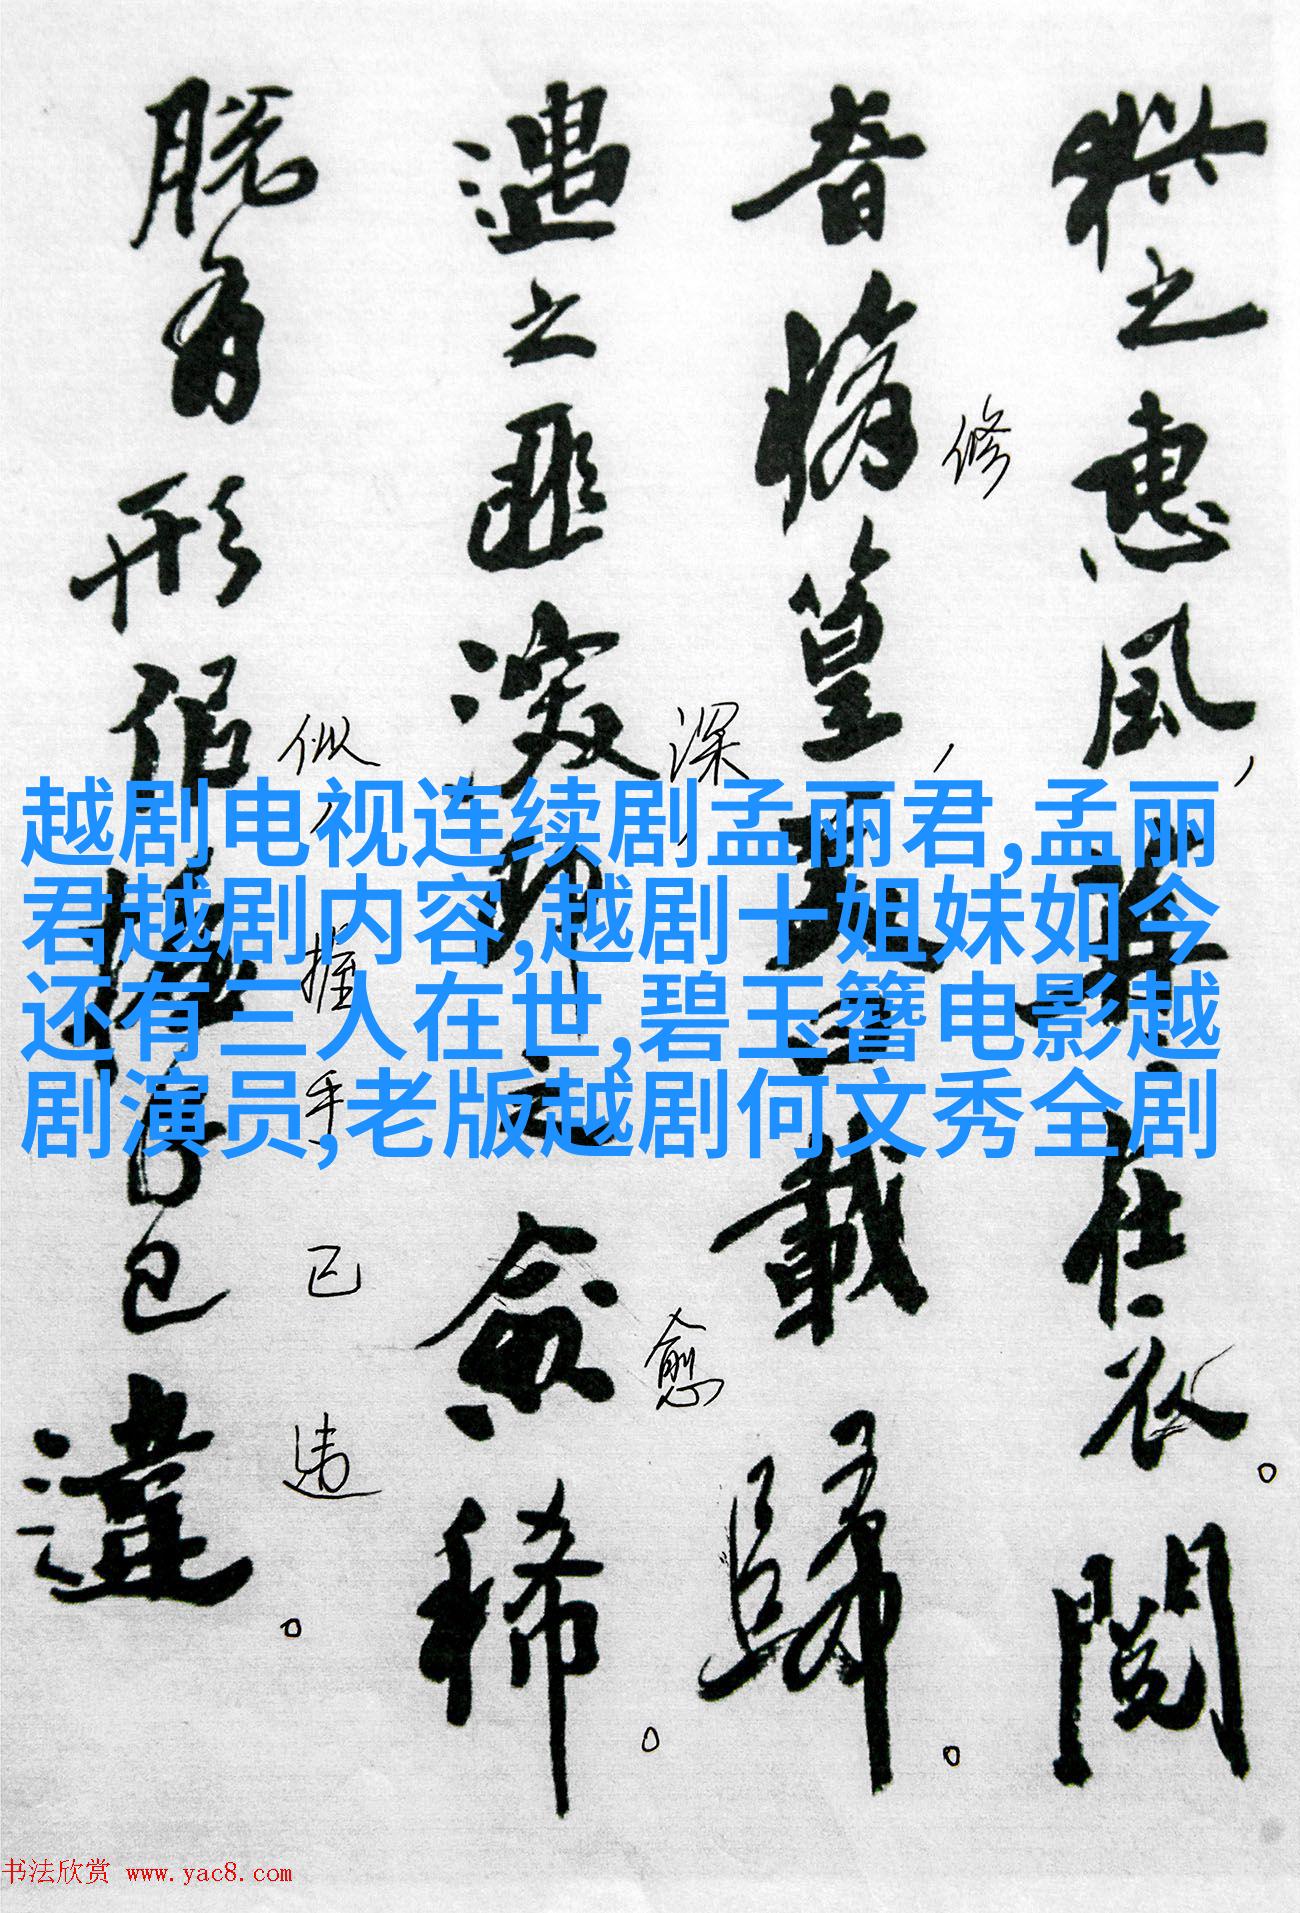 越剧电视连续剧孟丽君,孟丽
君越剧内容,越剧十姐妹如今
还有三人在世,碧玉簪电影越
剧演员,老版越剧何文秀全剧
猶之惠風，苒在衣。閱
音脩篁，載歸。
修
遇之匪深，之愈稀。
深
愈
脱有形似，握手已違。
似
握
手
已
违
书法欣赏 www.yac8.com